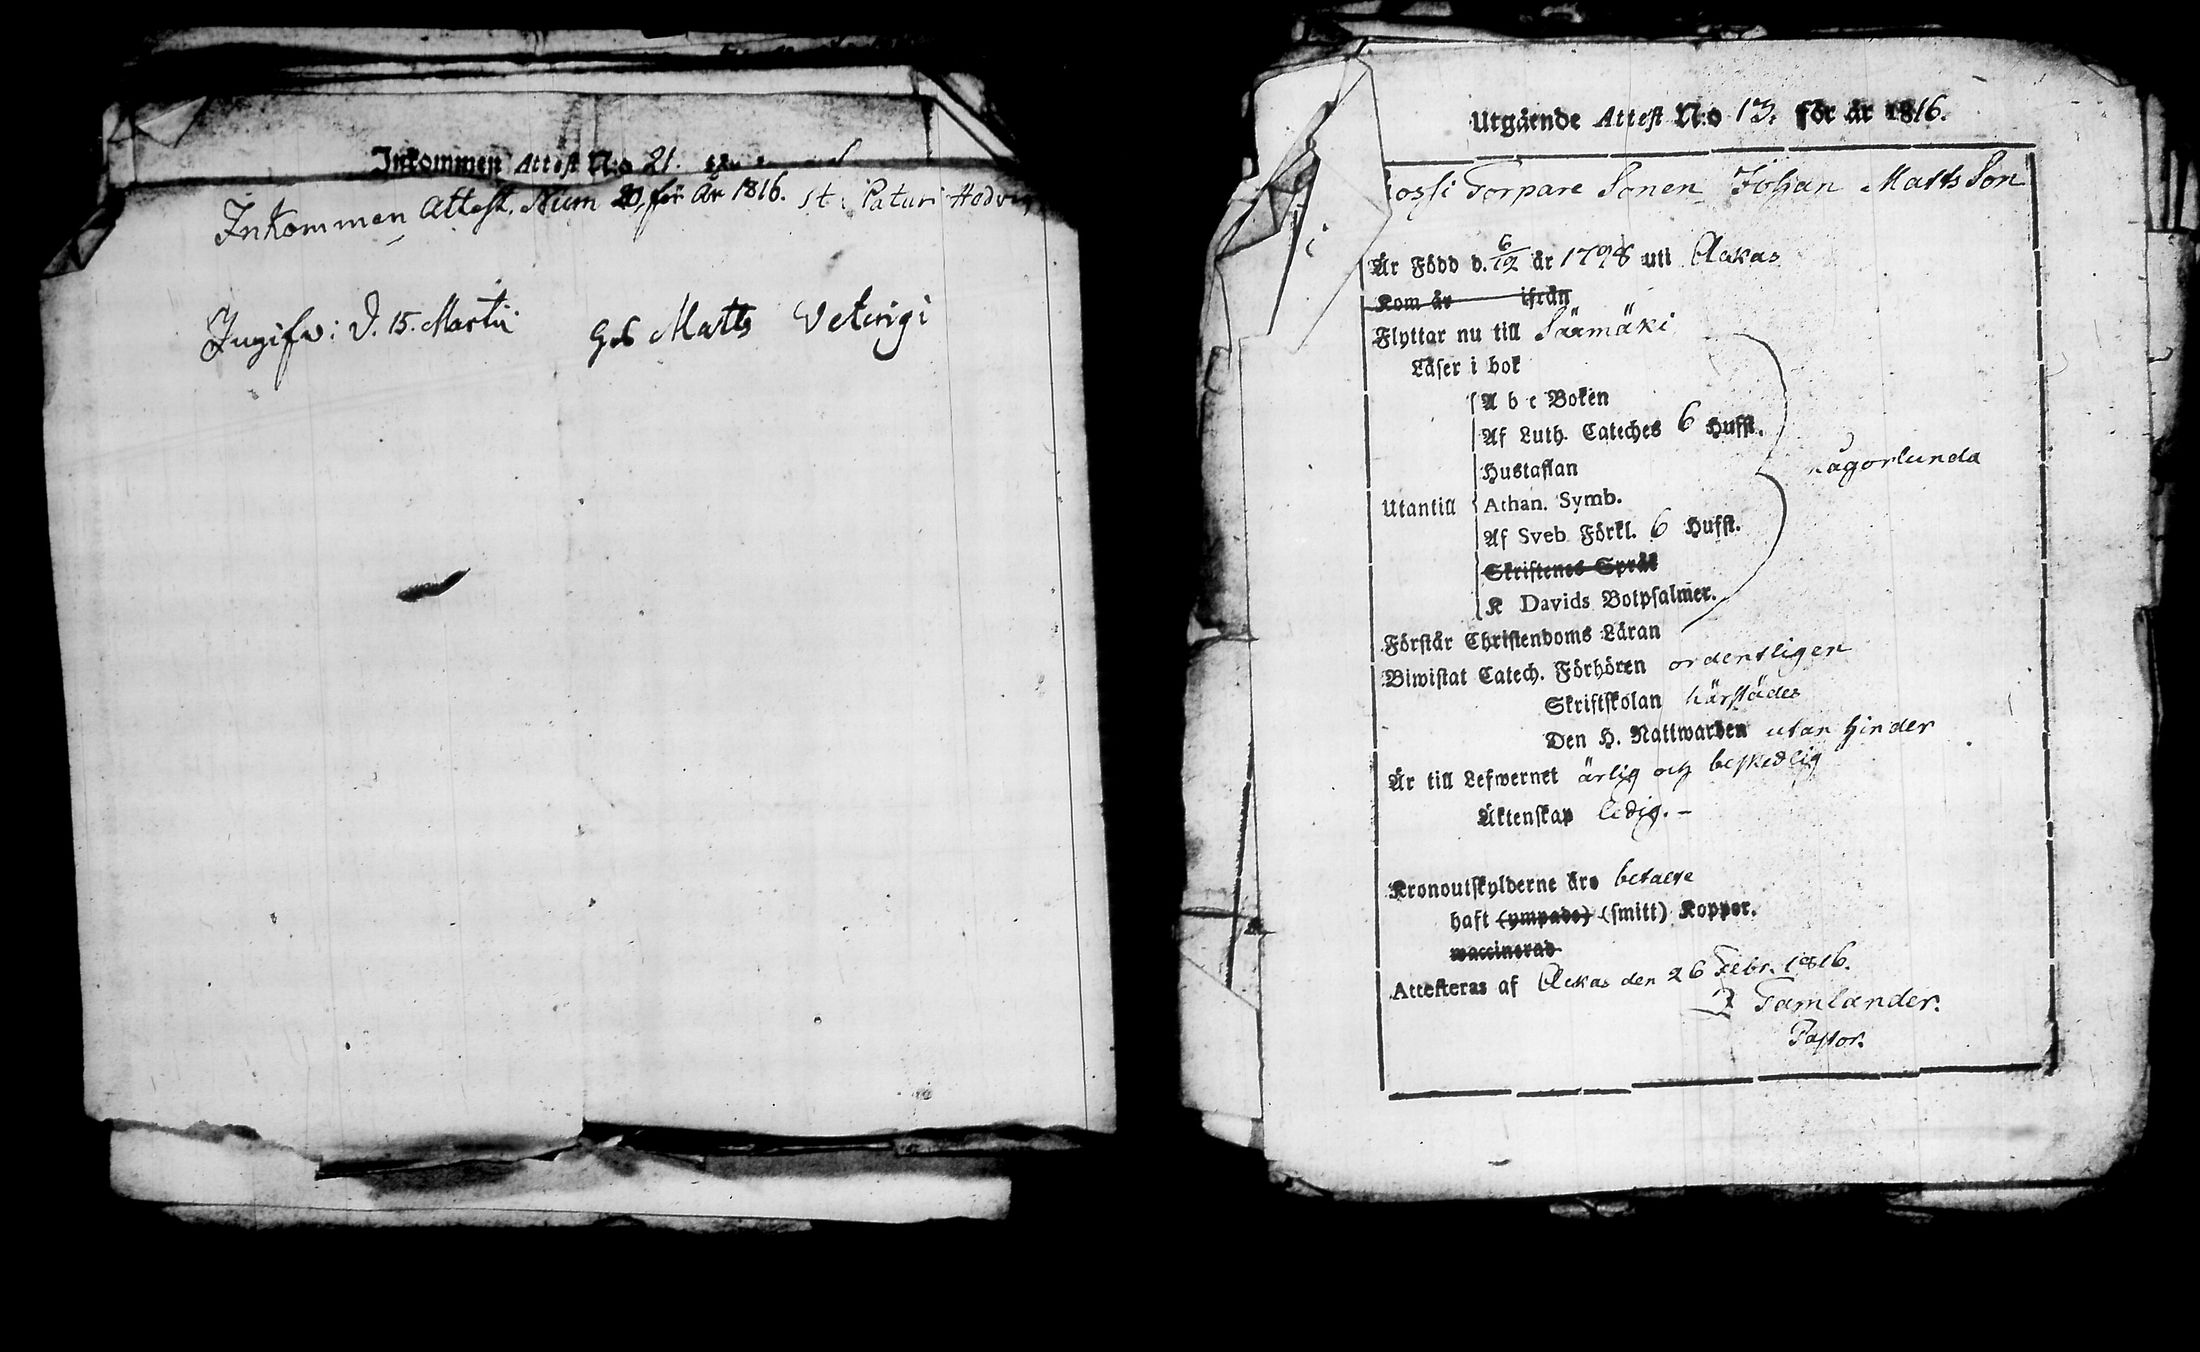 Inkommen Attest N:o 21.
Inkommen Attest. Num 20, för År 1816. st: Paturi Hedvig
Ingifv: D. 15. Martii Gab Matts Veterigi
Utgående Attest N:o 13. För år 1816.
Torpare Sonen Johan Matts Son
Är Född d. 6/12 år 1798 uti Ackas
Kom år ifrån
Flyttar nu till Särmäki
Läser i bok
A b c Boken
Af Luth. Cateches 6 Hufst.
Hustaflan
någorlunda
Utantill Athan. Symb.
Af Sveb. Förkl. 6 Hufst.
Skriftenes Språk
K Davids Botpsalmer.
Förstår Christendoms Läran
Biwistat Catech. Förhören ordentligen
Skriftskolan härstädes
Den H. Nattwarden utan hinder
Är till Lefwernet ärlig och beskedlig
Äktenskap ledig. –
Kronoutskylderne äro betalte
haft (ympade) (smitt) Koppor.
waccinerad
Attesteras af Ackas den 26 Febr. 1816.
Tamlander.
Pastor.